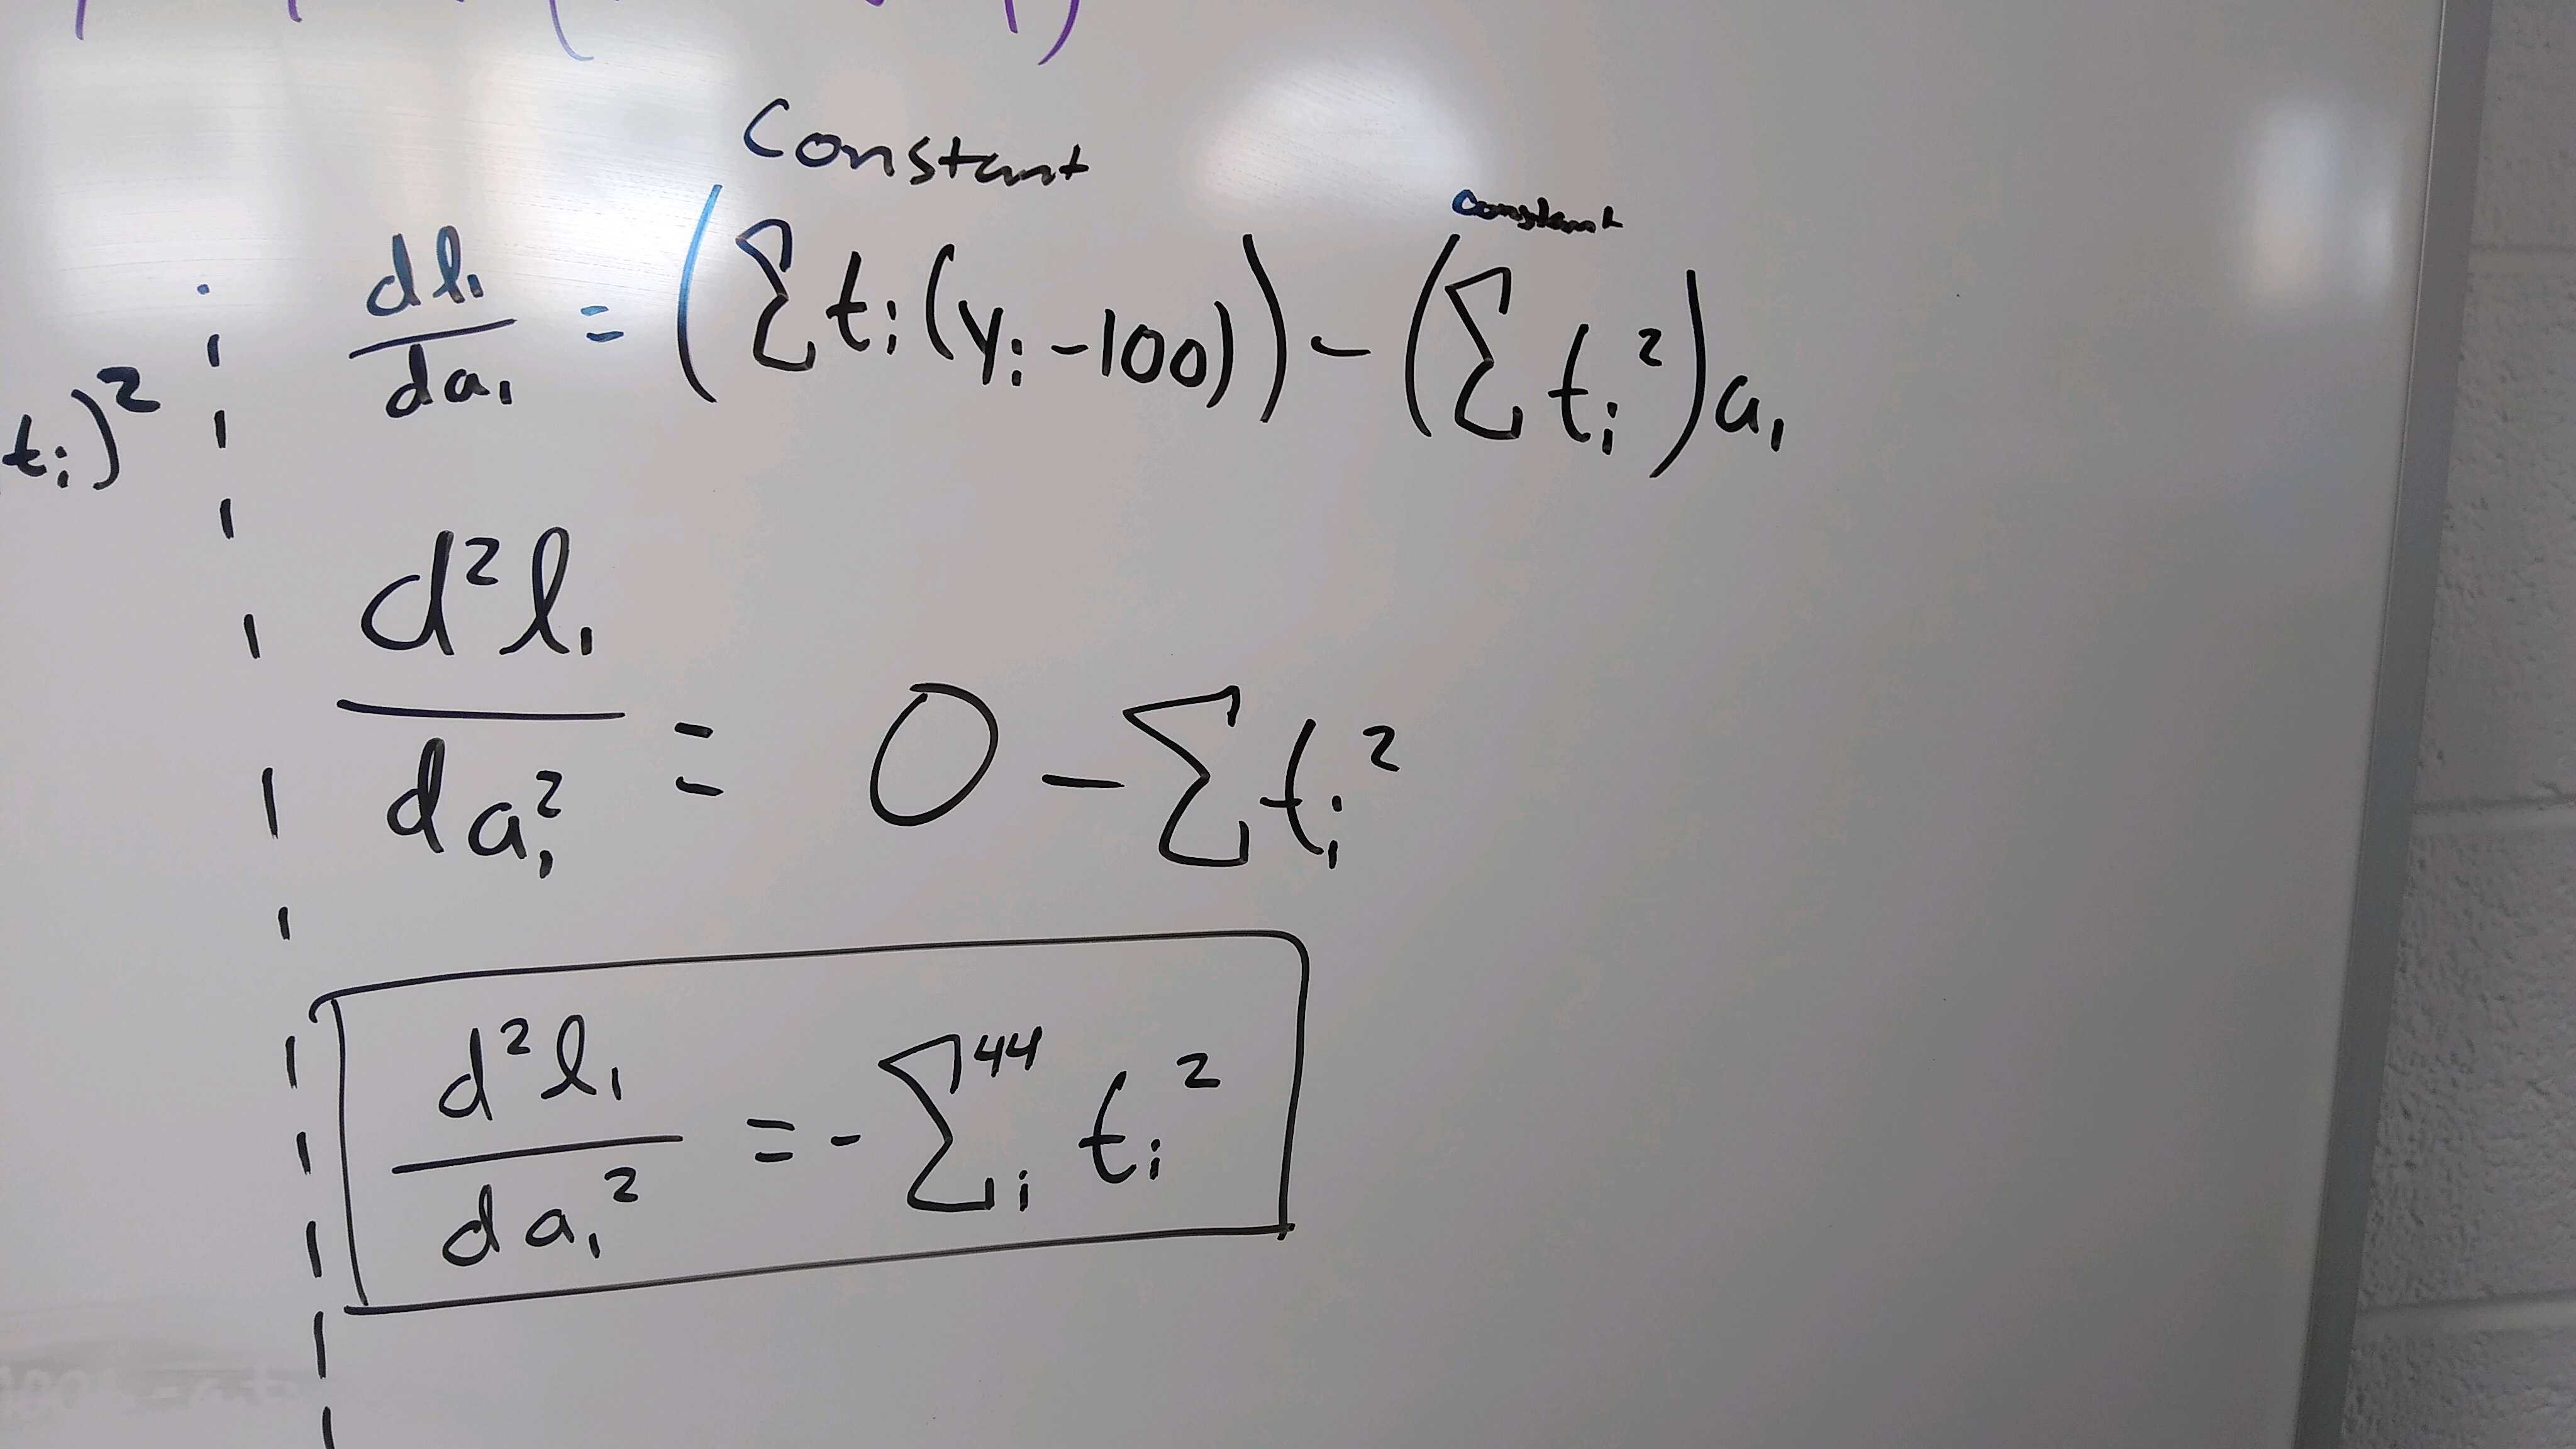 Constant
constant
dl₁/da₁ = (Σ tᵢ(yᵢ -100)) - (Σ tᵢ²)a₁
tᵢ)²
d²l₁/da₁² = 0 - Σ tᵢ²
d²l₁/da₁² = - Σᵢ⁴⁴ tᵢ²